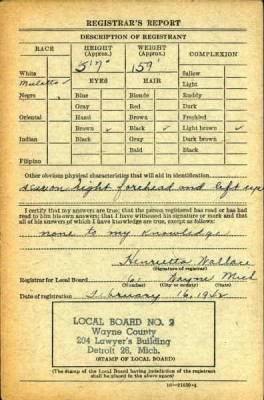 REGISTRAR'S REPORT
DESCRIPTION OF REGISTRANT
RACE HEIGHT (Approx.) WEIGHT (Approx.) COMPLEXION
5' 7" 157
White EYES HAIR Sallow
Mulatto ✓ Light
Negro Blue Blonde Ruddy
Gray Red Dark
Oriental Hazel Brown Freckled
Brown ✓ Black ✓ Light brown ✓
Indian Black Gray Dark brown
Bald Black
Filipino
Other obvious physical characteristics that will aid in identification
scar on right forehead and left
I certify that my answers are true; that the person registered has read or has had
read to him his own answers; that I have witnessed his signature or mark and that
all of his answers of which I have knowledge are true, except as follows:
none to my knowledge
Henrietta Wallace
(Signature of registrar)
Registrar for Local Board Wayne Mich
(Number) (City or county) (State)
Date of registration February 16, 1942
LOCAL BOARD NO. 2
Wayne County
204 Lawyer's Building
Detroit 26, Mich.
(STAMP OF LOCAL BOARD)
(The stamp of the Local Board having jurisdiction of the registrant
shall be placed in the above space)